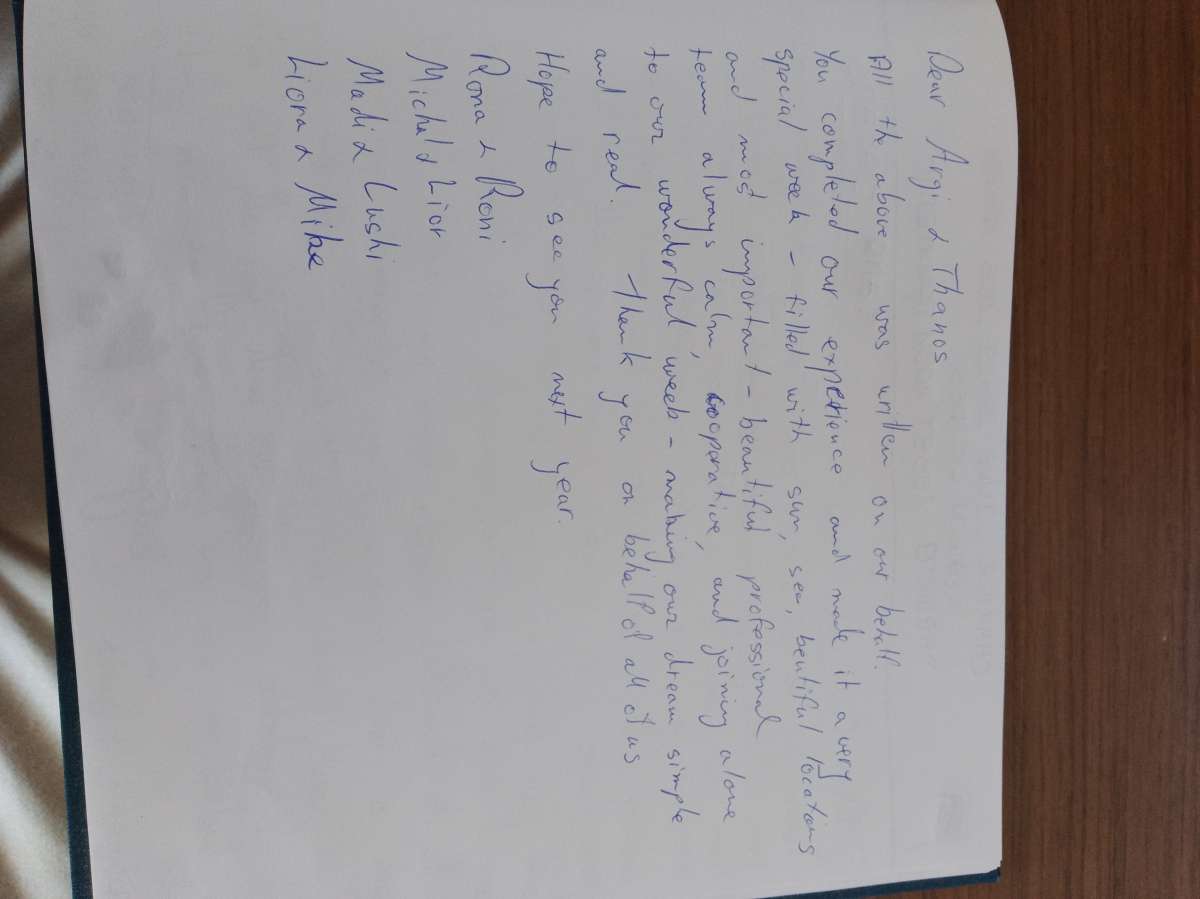 Dear Argi & Thanos
All the above was written on our behalf.
You completed our experience and made it a very
special week - filled with sun, sea, beutiful locations
and most important - beautiful professional
team always calm, cooperative, and joining alone
to our wonderful week - making our dream simple
and real. Thank you on behalf of all of us
Hope to see you next year.
Rona & Roni
Michal & Lior
Madi & Lushi
Liora & Mike